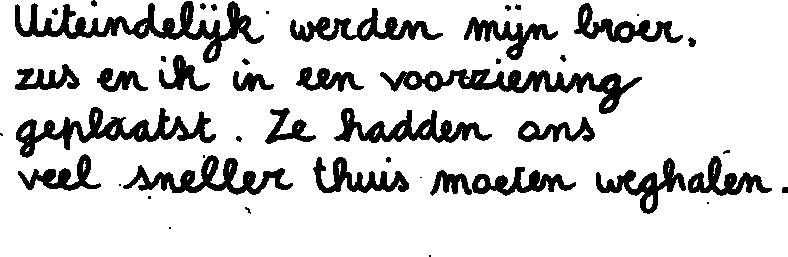 Uiteindelijk werden mijn broer,
zus en ik in een voorziening
geplaatst. Ze hadden ons
veel sneller thuis moeten weghalen.